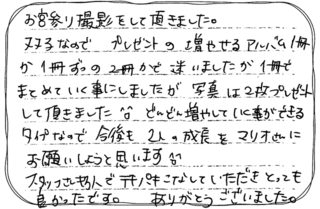 お宮参り撮影をして頂きました。
双子なので プレゼントの増やせるアルバム1冊
か 1冊ずつの2冊かで迷いましたが 1冊で
まとめていく事にしましたが 写真は2枚プレゼント
して頂きました^^ どんどん増やしていく事ができる
タイプなので 今後も2人の成長をマリオさんに
お願いしようと思います^^
スタッフさんも3人でテキパキこなしていただきとっても
良かったです。 ありがとうございました。